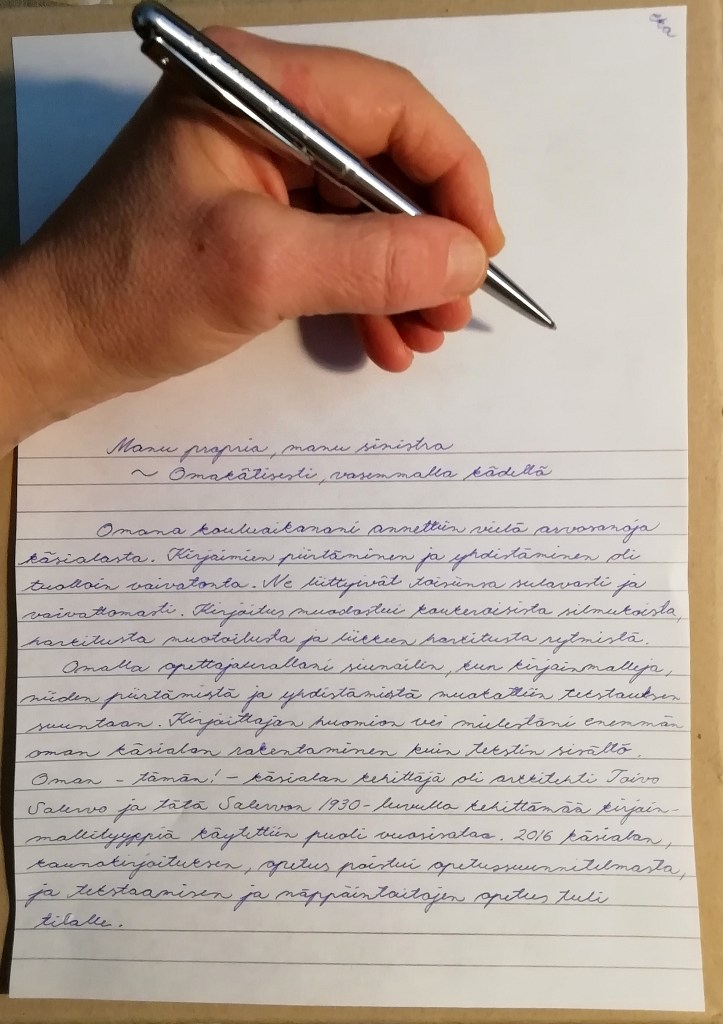 eka
Manu propria, manu sinistra
~ Omakätisesti, vasemmalla kädellä
Omana kouluaikanani annettiin vielä arvosanoja
käsialasta. Kirjaimien piirtäminen ja yhdistäminen oli
tuolloin vaivatonta. Ne liittyivät toisiinsa sulavasti ja
vaivattomasti. Kirjoitus muodostui koukeroisista silmukoista,
harkitusta muotoilusta ja liikkeen harkitusta rytmistä.
Omalla opettajaurallani siunailin, kun kirjainmalleja,
niiden piirtämistä ja yhdistämistä muokattiin tekstauksen
suuntaan. Kirjoittajan huomion vei mielestäni enemmän
oman käsialan rakentaminen kuin tekstin sisältö.
Oman - tämän! - käsialan kehittäjä oli arkkitehti Toivo
Salervo ja tätä Salervon 1930-luvulla kehittämää kirjain-
mallityyppiä käytettiin puoli vuosisataa. 2016 käsialan,
kaunokirjoituksen, opetus poistui opetussuunnitelmasta,
ja tekstaamisen ja näppäintaitojen opetus tuli
tilalle.